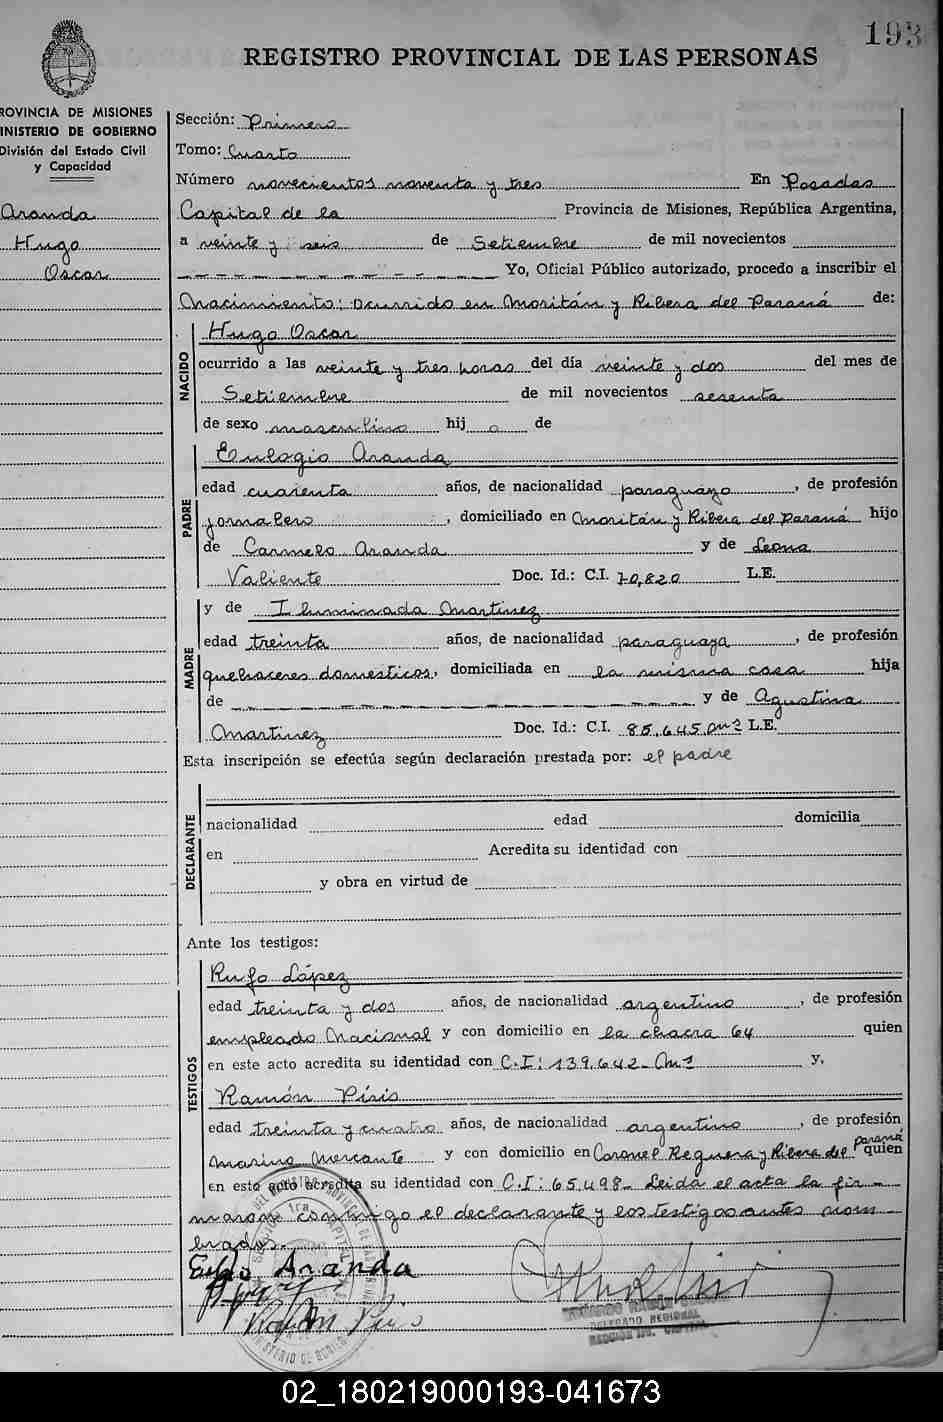 193
REGISTRO PROVINCIAL DE LAS PERSONAS
ROVINCIA DE MISIONES
INISTERIO DE GOBIERNO
División del Estado Civil
y Capacidad
Aranda
Hugo
Oscar
Sección: Primero
Tomo: Cuarto
Número novecientos noventa y tres En Posadas
Capital de la Provincia de Misiones, República Argentina,
a veinte y seis de Setiembre de mil novecientos
Yo, Oficial Público autorizado, procedo a inscribir el
Nacimiento: ocurrido en Moritán y Ribera del Paraná de:
NACIDO
Hugo Oscar
ocurrido a las veinte y tres horas del día veinte y dos del mes de
Setiembre de mil novecientos sesenta
de sexo masculino hij o de
PADRE
Eulogio Aranda
edad cuarenta años, de nacionalidad paraguayo, de profesión
jornalero, domiciliado en Moritán y Ribera del Paraná hijo
de Carmelo Aranda y de Leona
Valiente Doc. Id.: C.I. 70,820 L.E.
MADRE
y de Iluminada Martinez
edad treinta años, de nacionalidad paraguaya, de profesión
quehaceres domesticos, domiciliada en la misma casa hija
de y de Agustina
Martinez Doc. Id.: C.I. 85.645 Mns L.E.
Esta inscripción se efectúa según declaración prestada por: el padre
DECLARANTE
nacionalidad edad domicilia
en Acredita su identidad con
y obra en virtud de
Ante los testigos:
TESTIGOS
Rufo López
edad treinta y dos años, de nacionalidad argentino, de profesión
empleado Nacional y con domicilio en la chacra 64 quien
en este acto acredita su identidad con C.I: 139.642- Mns y,
Ramón Piris
edad treinta y cuatro años, de nacionalidad argentino, de profesión
Marino Mercante y con domicilio en Coronel Reguera y Ribera del Paraná quien
en este acto acredita su identidad con C.I: 65.498- Leida el acta la fir-
maron conmigo el declarante y los testigos antes nom-
brados.
Aranda
Ramón Piris
DELEGADO REGIONAL
02_180219000193-041673